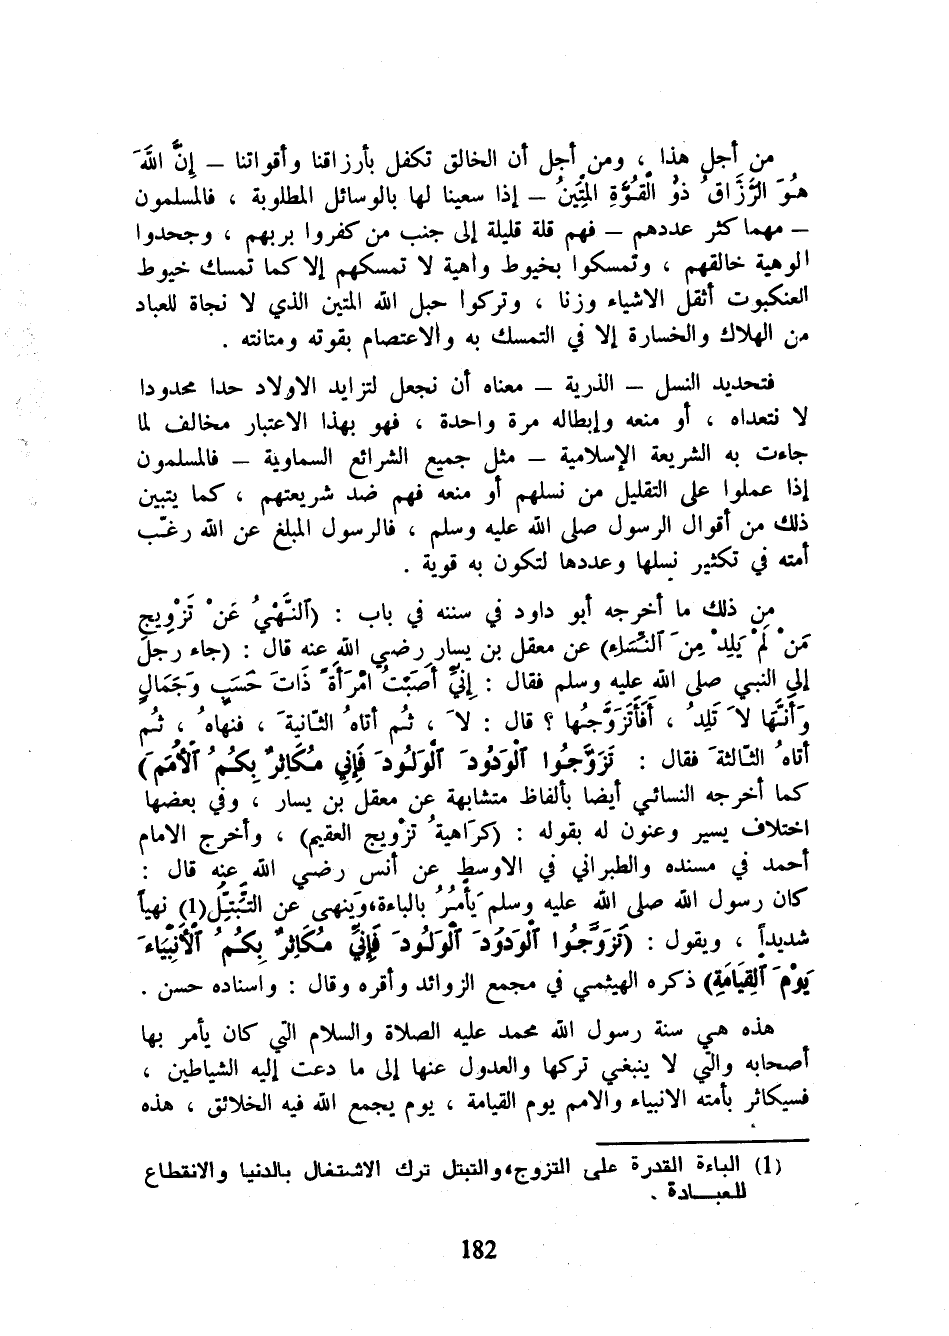 من أجل هذا ، ومن أجل أن الخالق تكفل بأرزاقنا وأقواتنا – إِنَّ اللَّهَ
هُوَ الرَّزَّاقُ ذُو الْقُوَّةِ الْمَتِينُ – إذا سعينا لها بالوسائل المطلوبة ، فالمسلمون
– مهما كثر عددهم – فهم قلة قليلة إلى جنب من كفروا بربهم ، وجحدوا
الوهية خالقهم ، وتمسكوا بخيوط واهية لا تمسكهم إلا كما تمسك خيوط
العنكبوت أثقل الاشياء وزنا ، وتركوا حبل الله المتين الذي لا نجاة للعباد
من الهلاك والخسارة إلا في التمسك به والاعتصام بقوته ومتانته .
فتحديد النسل – الذرية – معناه أن نجعل لتزايد الاولاد حدا محدودا
لا نتعداه ، أو منعه وإبطاله مرة واحدة ، فهو بهذا الاعتبار مخالف لما
جاءت به الشريعة الإسلامية – مثل جميع الشرائع السماوية – فالمسلمون
إذا عملوا على التقليل من نسلهم أو منعه فهم ضد شريعتهم ، كما يتبين
ذلك من أقوال الرسول صلى الله عليه وسلم ، فالرسول المبلغ عن الله رغّب
أمته في تكثير نسلها وعددها لتكون به قوية .
من ذلك ما أخرجه أبو داود في سننه في باب : (اَلنَّهْيُ عَنْ تَزْوِيجِ
مَنْ لَمْ يَلِدْ مِنَ اَلنِّسَاءِ) عن معقل بن يسار رضي الله عنه قال : (جاء رجل
إلى النبي صلى الله عليه وسلم فقال : إِنِّي أَصَبْتُ امْرَأَةً ذَاتَ حَسَبٍ وَجَمَالٍ
وَأَنَّهَا لاَ تَلِدُ ، أَفَأَتَزَوَّجُهَا ؟ قال : لاَ ، ثُم أتاهُ الثّانيةَ ، فنهاهُ ، ثُم
أتاهُ الثّالثةَ فقال : تَزَوَّجُوا اَلْوَدُودَ اَلْوَلُودَ فَإِنِّي مُكَاثِرٌ بِكُمُ اَلْأُمَمَ)
كما أخرجه النسائي أيضا بألفاظ متشابهة عن معقل بن يسار ، وفي بعضها
اختلاف يسير وعنون له بقوله : (كرَاهيةُ تزْويج العقيم) ، وأخرج الامام
أحمد في مسنده والطبراني في الاوسط عن أنس رضي الله عنه قال :
كان رسول الله صلى الله عليه وسلم يَأْمُرُ بالباءة، وَينهى عن التَّبَتّل(1) نهياً
شديداً ، ويقول : (تَزَوَّجُوا اَلْوَدُودَ اَلْوَلُودَ فَإِنِّي مُكَاثِرٌ بِكُمُ اَلْأَنْبِيَاءَ
يَوْمَ اَلْقِيَامَةِ) ذكره الهيثمي في مجمع الزوائد وأقره وقال : واسناده حسن .
هذه هي سنة رسول الله محمد عليه الصلاة والسلام التي كان يأمر بها
أصحابه والتي لا ينبغي تركها والعدول عنها إلى ما دعت إليه الشياطين ،
فسيكاثر بأمته الانبياء والامم يوم القيامة ، يوم يجمع الله فيه الخلائق ، هذه
(1) الباءة القدرة على التزوج، والتبتل ترك الاشتغال بالدنيا والانقطاع
للعبــادة .
182